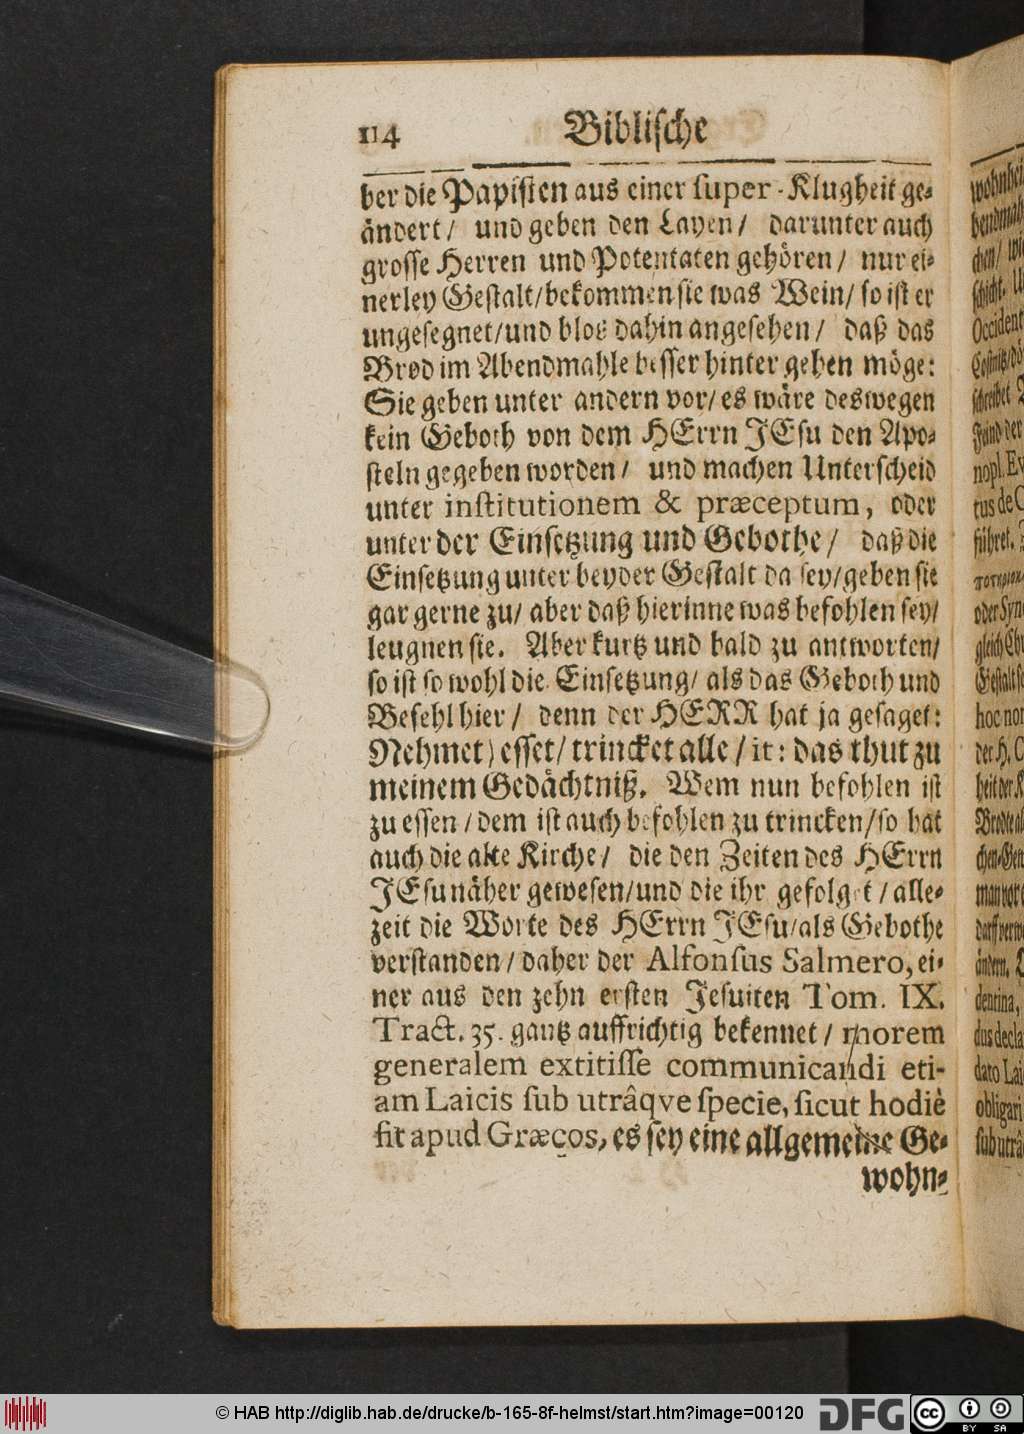 114 Biblische
ber die Papisten aus einer super-Klugheit ge-
ändert / und geben den Layen / darunter auch
grosse Herren und Potentaten gehören / nur ei-
nerley Gestalt / bekommen sie was Wein / so ist er
ungesegnet / und blos dahin angesehen / daß das
Brod im Abendmahle besser hinter gehen möge:
Sie geben unter andern vor / es wäre deswegen
kein Geboth von dem HErrn JEsu den Apo-
steln gegeben worden / und machen Unterscheid
unter institutionem & præceptum, oder
unter der Einsetzung und Gebothe / daß die
Einsetzung unter beyder Gestalt da sey / geben sie
gar gerne zu / aber daß hierinne was befohlen sey /
leugnen sie. Aber kurtz und bald zu antworten /
so ist so wohl die Einsetzung / als das Geboth und
Befehl hier / denn der HERR hat ja gesaget:
Nehmet) esset / trincket alle / it: das thut zu
meinem Gedächtniß. Wem nun befohlen ist
zu essen / dem ist auch befohlen zu trincken / so hat
auch die alte Kirche / die den Zeiten des HErrn
JEsu näher gewesen / und die ihr gefolget / alle-
zeit die Worte des HErrn JEsu / als Gebothe
verstanden / daher der Alfonsus Salmero, ei-
ner aus den zehn ersten Jesuiten Tom. IX.
Tract. 35. gantz auffrichtig bekennet / morem
generalem extitisse communicandi eti-
am Laicis sub utrâqve specie, sicut hodiè
fit apud Græcos, es sey eine allgemeine Ge-
wohn-
© HAB http://diglib.hab.de/drucke/b-165-8f-helmst/start.htm?image=00120
DFG
cc
BY SA